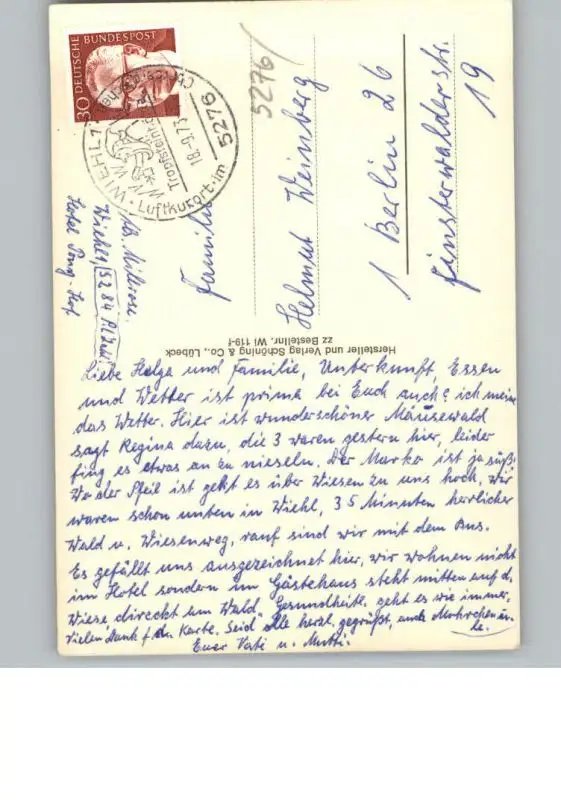 30
DEUTSCHE
BUNDESPOST
WIEHL 1
Luftkurort im
Tropfstein
18.-9.73
5276
5276
Familie
Helmut Weinsberg
1 Berlin 26
Finsterwalderstr.
19
Wiehl, 5284
Hotel
Hersteller und Verlag Schöning & Co., Lübeck
zz Bestellnr. Wi 119-f
Liebe Helga und Familie, Unterkunft, Essen
und Wetter ist prima bei Euch auch? ich meine
das Wetter. Hier ist wunderschöner Mäusewald
sagt Regina dazu, die 3 waren gestern hier, leider
fing es etwas an zu nieseln. Der Marko ist ja süß!
Wo der Pfeil ist geht es über Wiesen zu uns hoch. Wir
waren schon unten in Wiehl, 35 Minuten herrlicher
Wald u. Wiesenweg, rauf sind wir mit dem Bus.
Es gefällt uns ausgezeichnet hier, wir wohnen nicht
im Hotel sondern im Gästehaus steht mitten auf d.
Wiese, direckt am Wald. Gesundheitl. geht es wie immer.
Vielen Dank f. d. Karte. Seid alle herzl. gegrüßt, auch
Euer Vati u. Mutti.